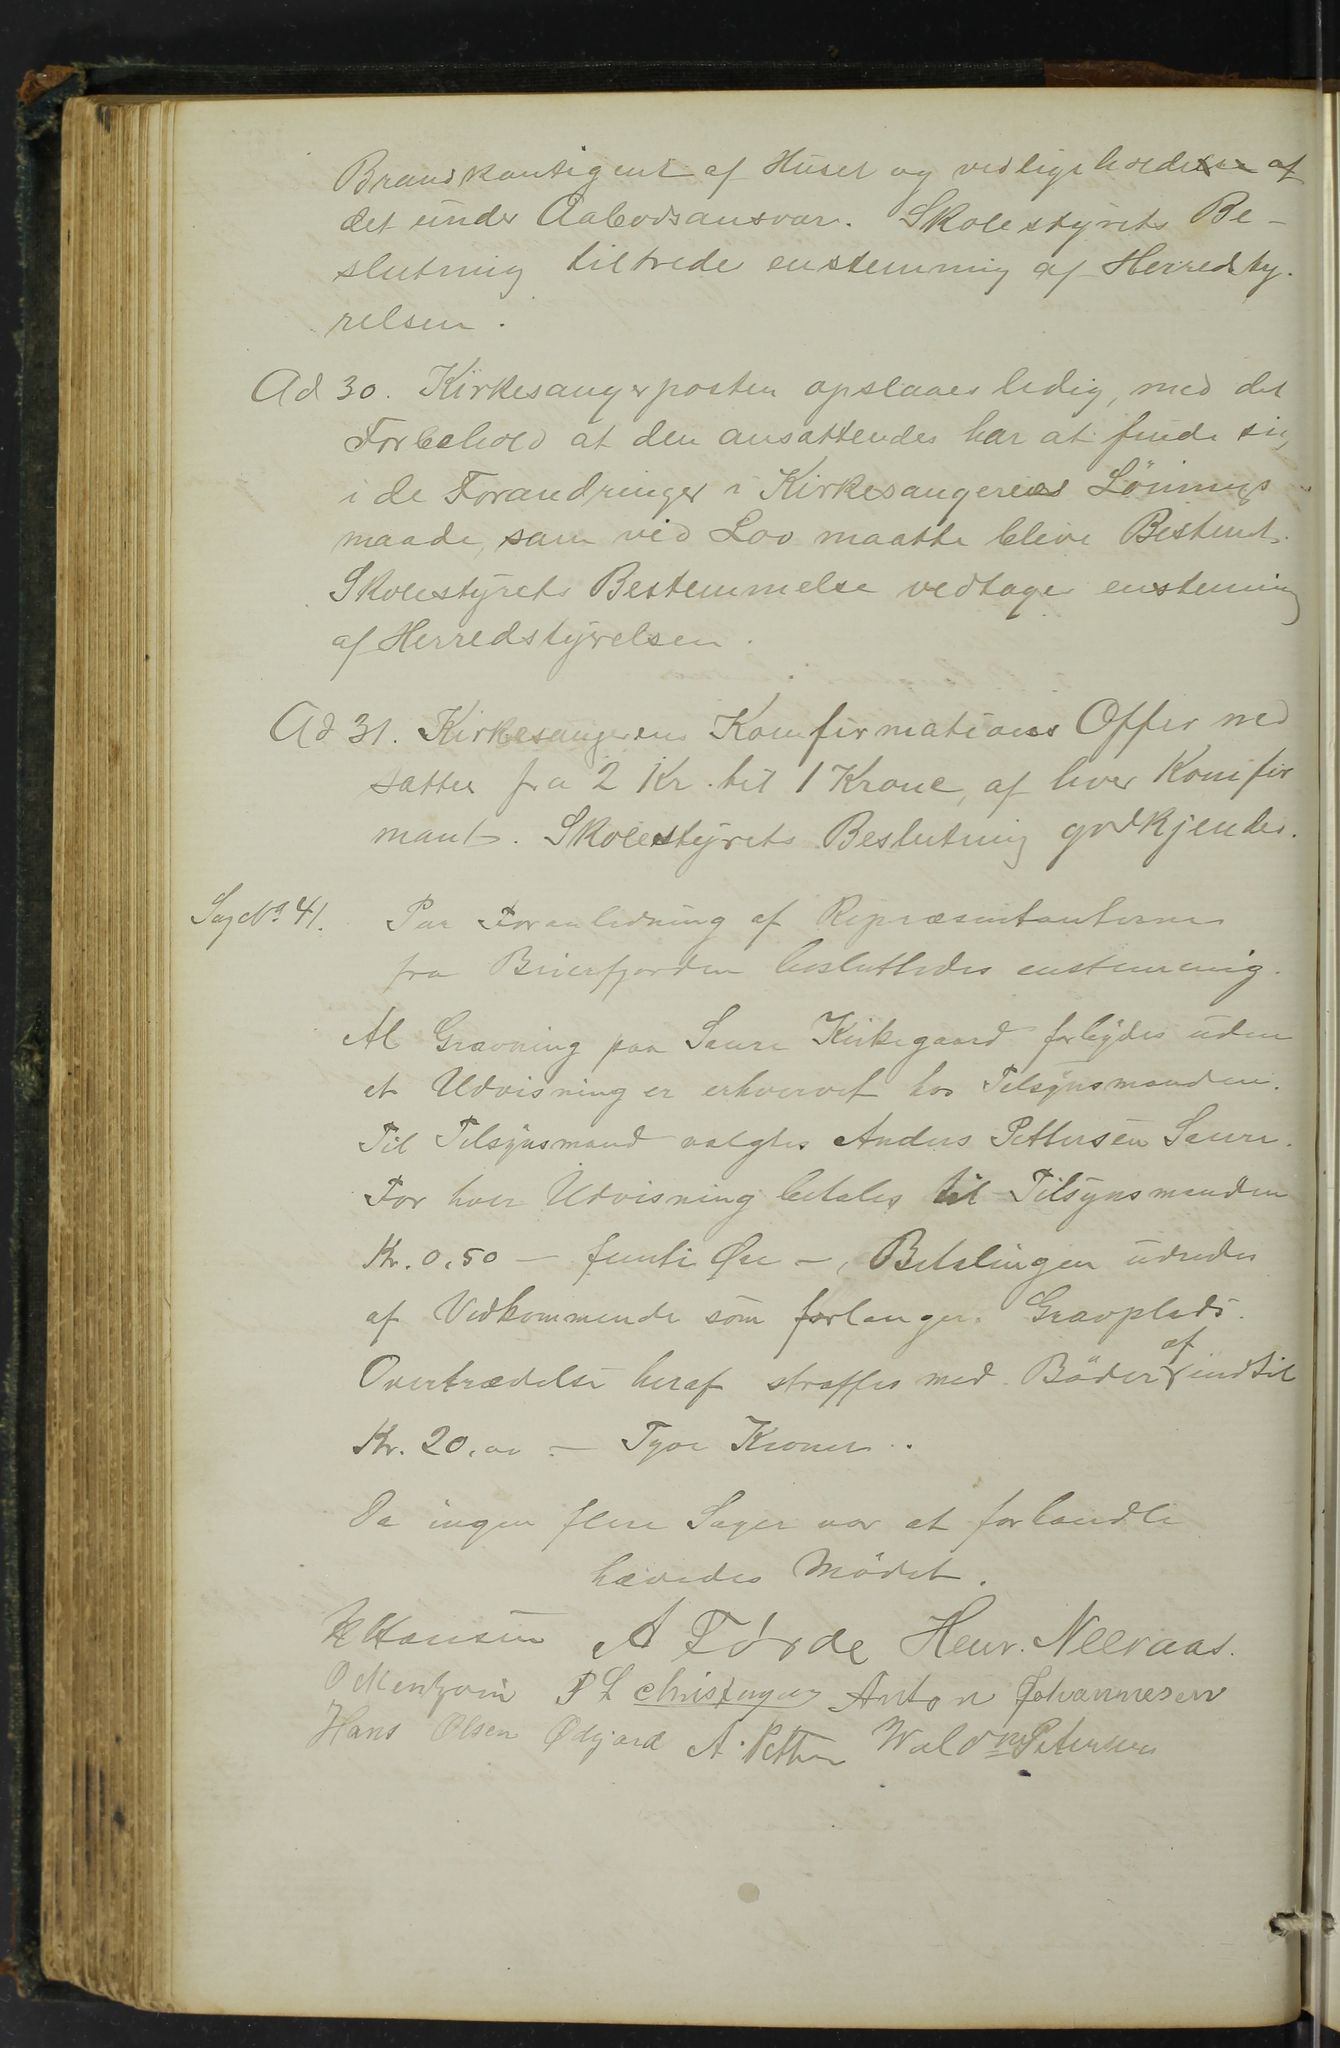 Brandkontigent af Huset og vedligeholdelse af
det under Aabodsansvar. Skolestyrets Be-
slutning tiltrædes enstemmig af Herredsty-
relsen.
Ad 30. Kirkesangerposten opslaaes ledig, med det
Forbehold at den ansattendes har at finde sig
i de Forandringer i Kirkesangerens Lönnings
maade, som ved Lov maatte blive Bestemt.
Skolestyrets Bestemmelse vedtages enstemmig
af Herredstyrelsen.
Ad 31. Kirkesangerens Komfirmations Offer ned
sattes fra 2 Kr. til 1 Krone, af hver Komfir
mant. Skolestyrets Beslutning godkjendes.
Sag No 41. Paa Foranledning af Repræsentanterne
fra Beierfjorden besluttedes enstemmig.
Al Gravning paa Saure Kirkegaard forbydes uden
at Udvisning er erhvervet hos Tilsynsmanden.
Til Tilsynsmand valgtes Anders Pettersen Saure.
For hver Udvisning betales til Tilsynsmanden
Kr. 0,50 – femti Øre –, Betalingen udredes
af Vedkommende som forlanger Gravplads.
Overtrædelse heraf straffes med Böder af indtil
Kr. 20,00 – Tyve Kroner.
Da ingen flere Sager var at forhandle
hævedes Mödet.
Hansen A Førde Henr. Neeraas.
P L Anton Johannesen
Hans Olsen Ødegard A. Petter Wald Petersen